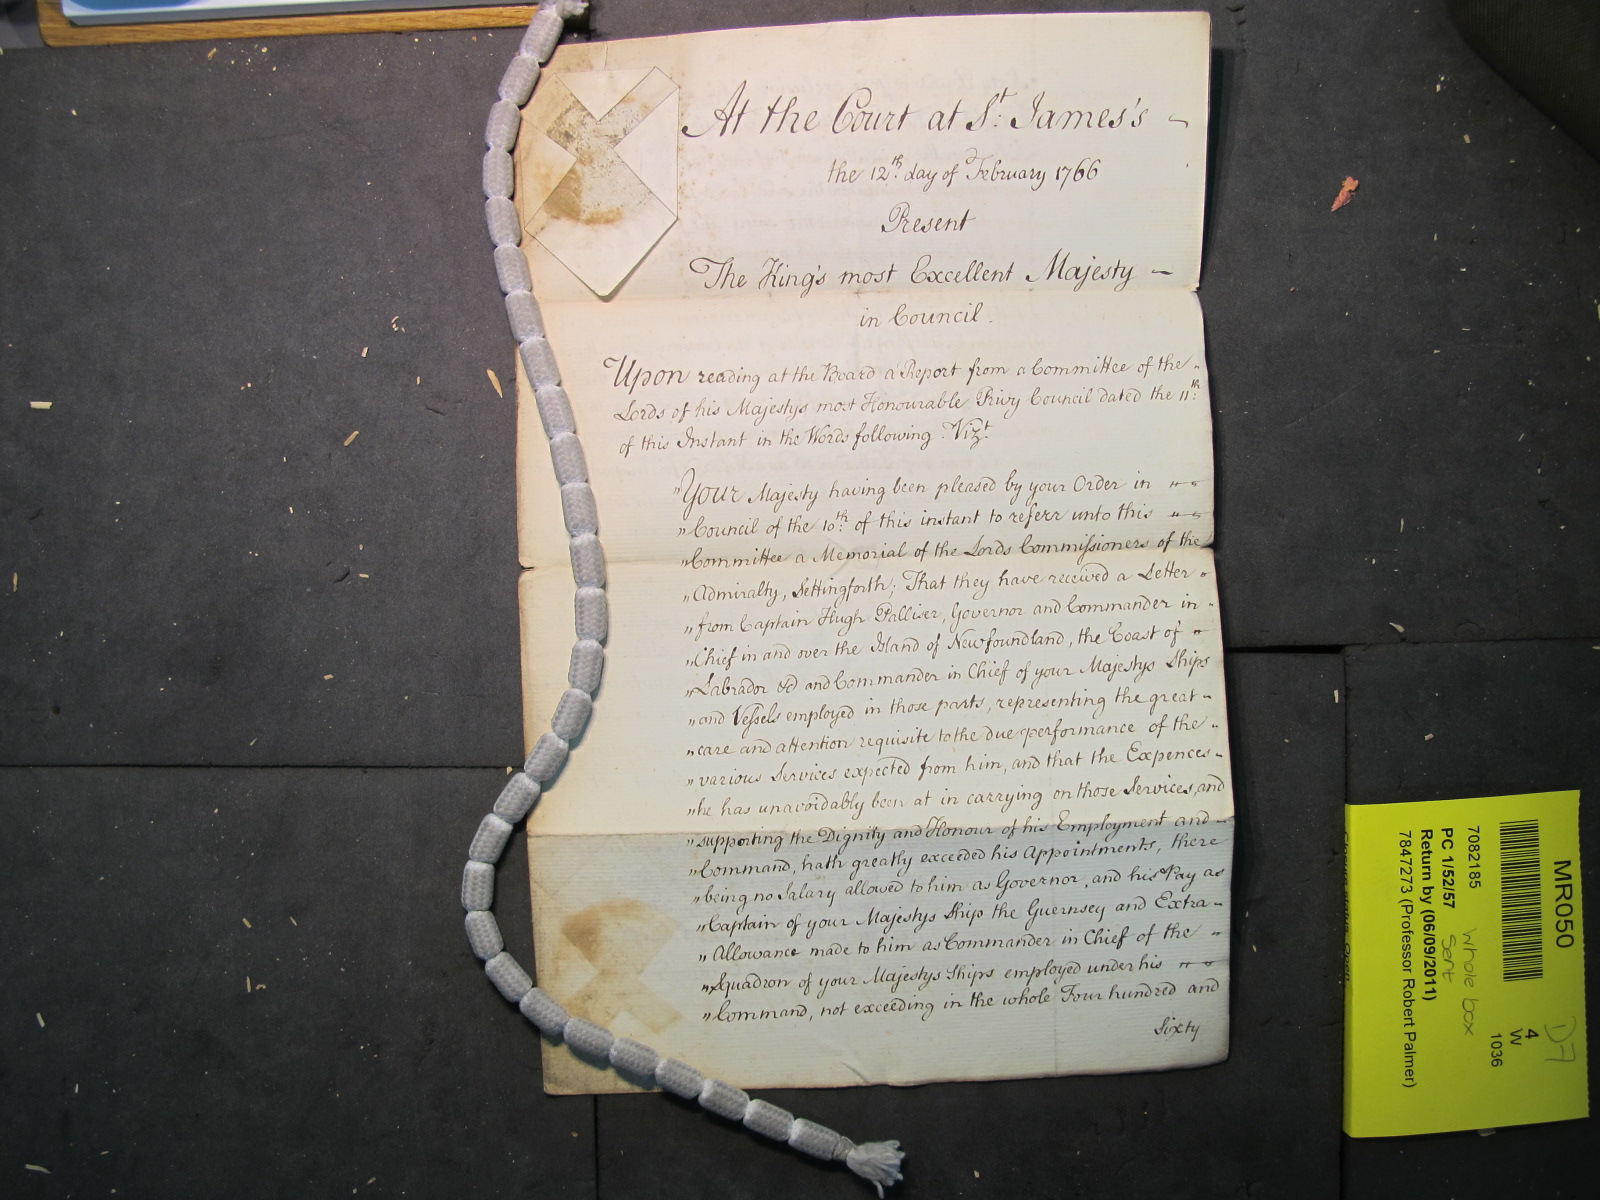 At the Court at St. James's
the 12th. day of February 1766
Present
The King's most Excellent Majesty
in Council.
Upon reading at the Board a Report from a Committee of the
Lords of his Majestys most Honourable Privy Council dated the 11th.
of this Instant in the Words following. Vizt.
"Your Majesty having been pleased by your Order in
"Council of the 10th. of this instant to referr unto this
"Committee a Memorial of the Lords Commissioners of the
"Admiralty, Settingforth; That they have received a Letter
"from Captain Hugh Palliser, Governor and Commander in
"Chief in and over the Island of Newfoundland, the Coast of
"Labrador &c and Commander in Chief of your Majestys Ships
"and Vessels employed in those parts, representing the great
"care and attention requisite to the due performance of the
"various Services expected from him, and that the Expences
"he has unavoidably been at in carrying on those Services, and
"supporting the Dignity and Honour of his Employment and
"Command, hath greatly exceeded his Appointments, there
"being no Salary allowed to him as Governor, and his Pay as
"Captain of your Majestys Ship the Guernsey and Extra
"Allowance made to him as Commander in Chief of the
"Squadron of your Majestys Ships employed under his
"Command, not exceeding in the whole Four hundred and
Sixty
MR050
4
W
1036
7082185
whole box
PC 1/52/57
sent
Return by (06/09/2011)
7847273 (Professor Robert Palmer)